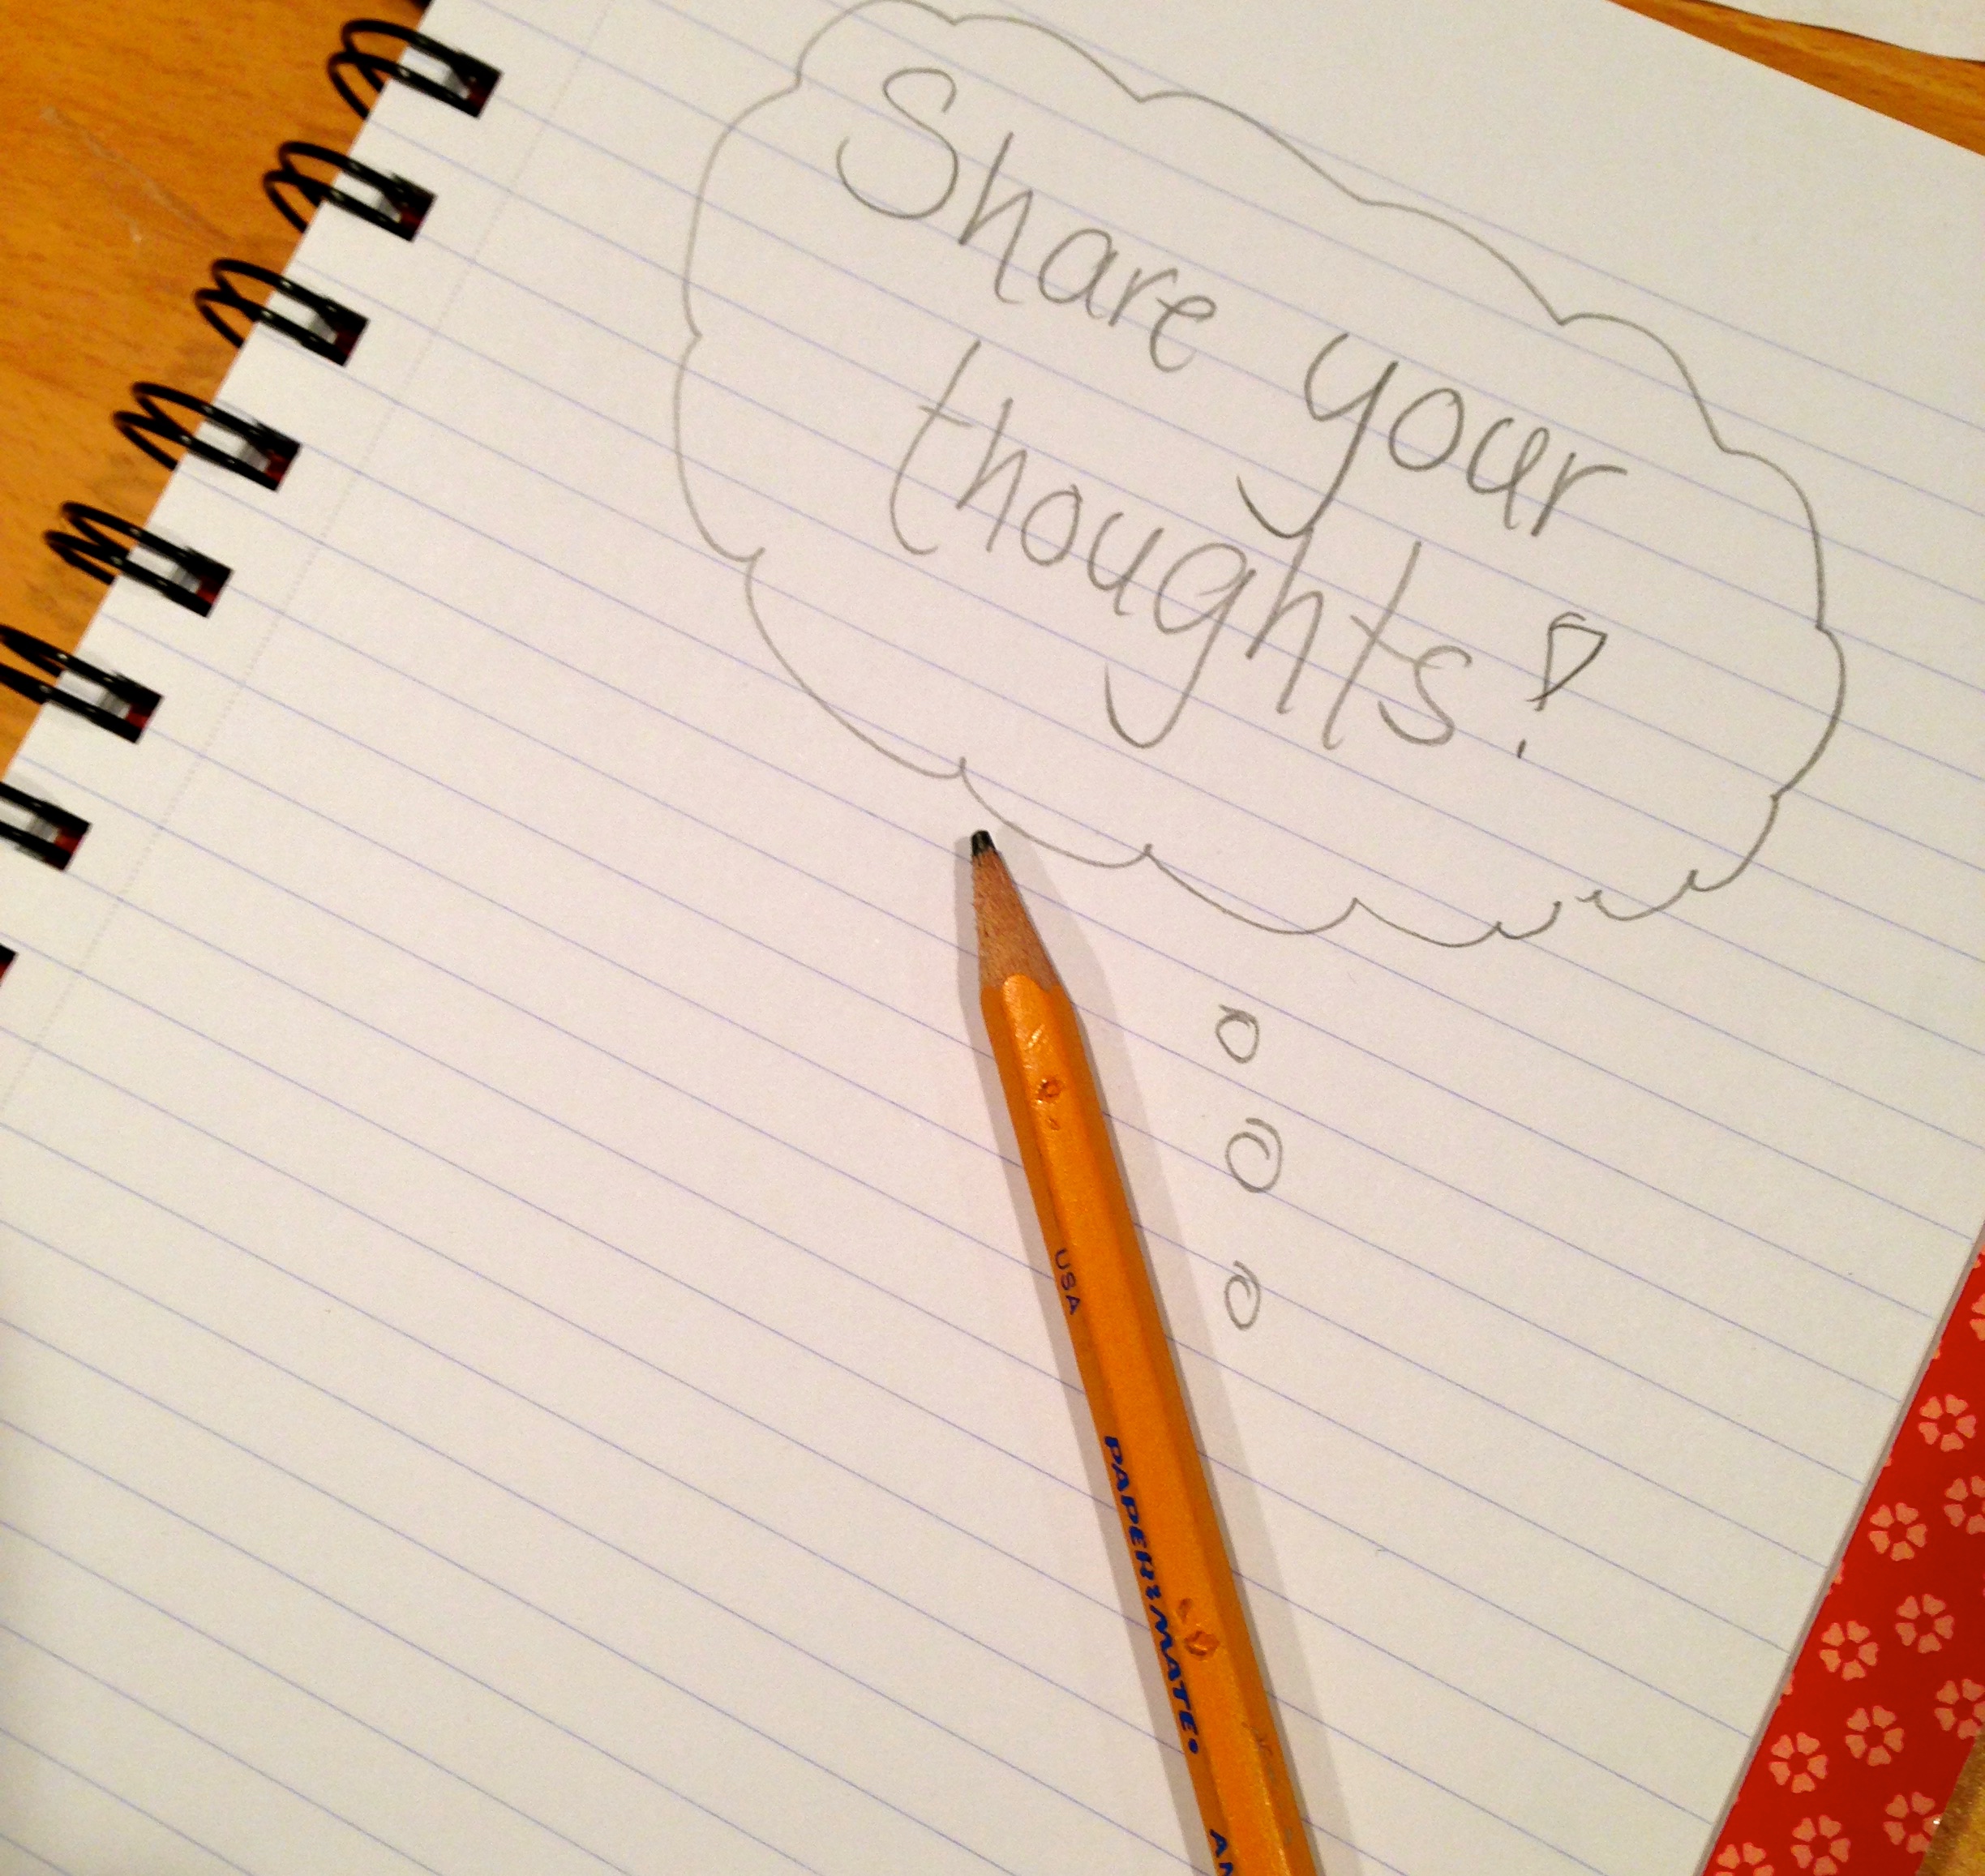 Share your
thoughts!
USA
PAPER:MATE.